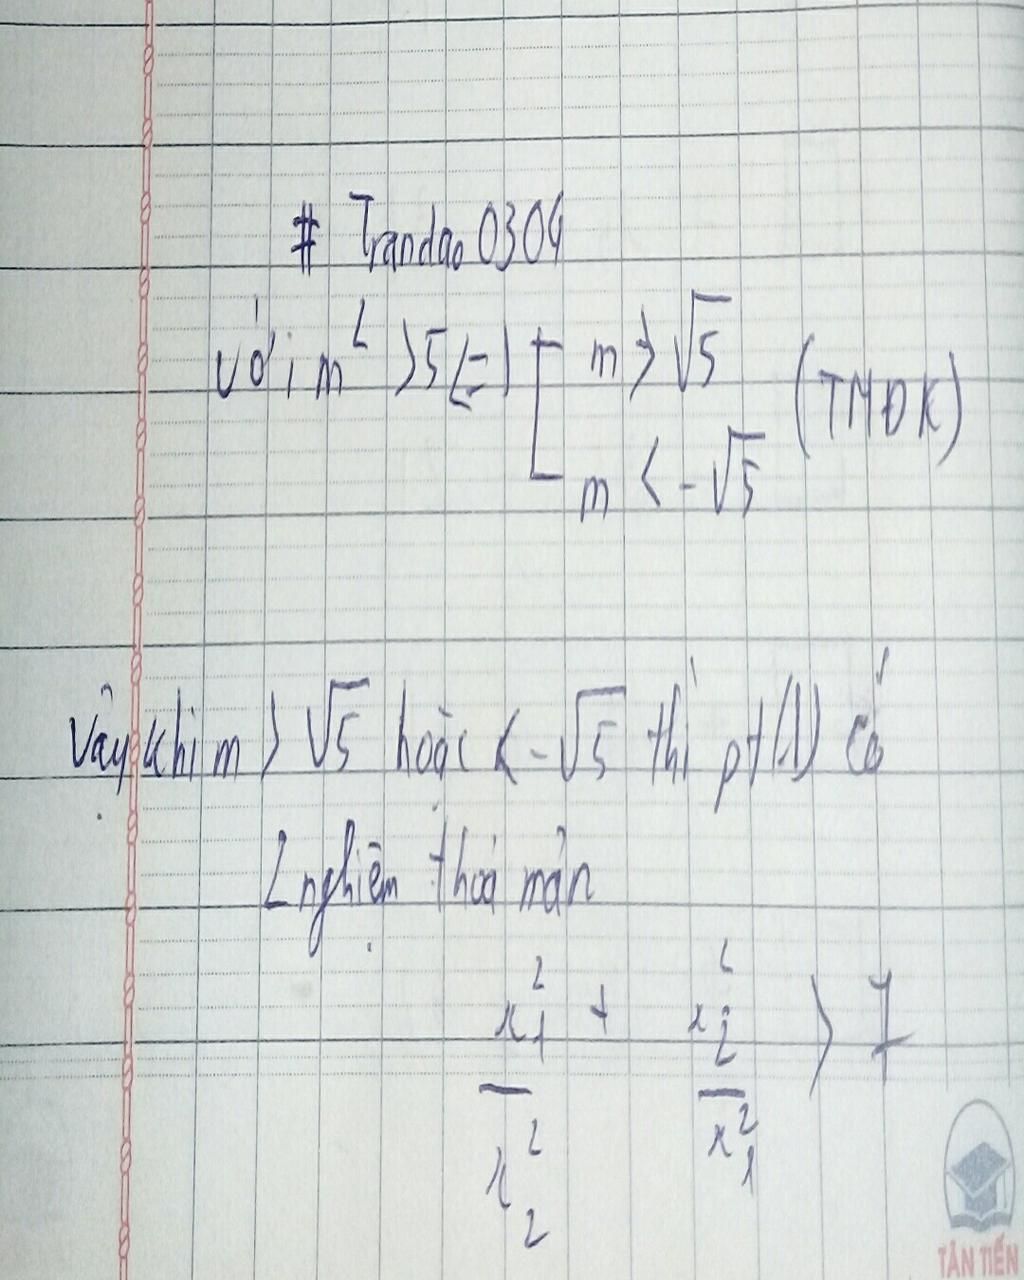 # Trandao0304
Với m² > 5 (=) [ m > √5 (TMĐK)
m < -√5
Vậy khi m > √5 hoặc < -√5 thì pt(1) có
2 nghiệm thoả mãn
x₁² + x₂² > 7
x₂² x₁²
TÂN TIẾN